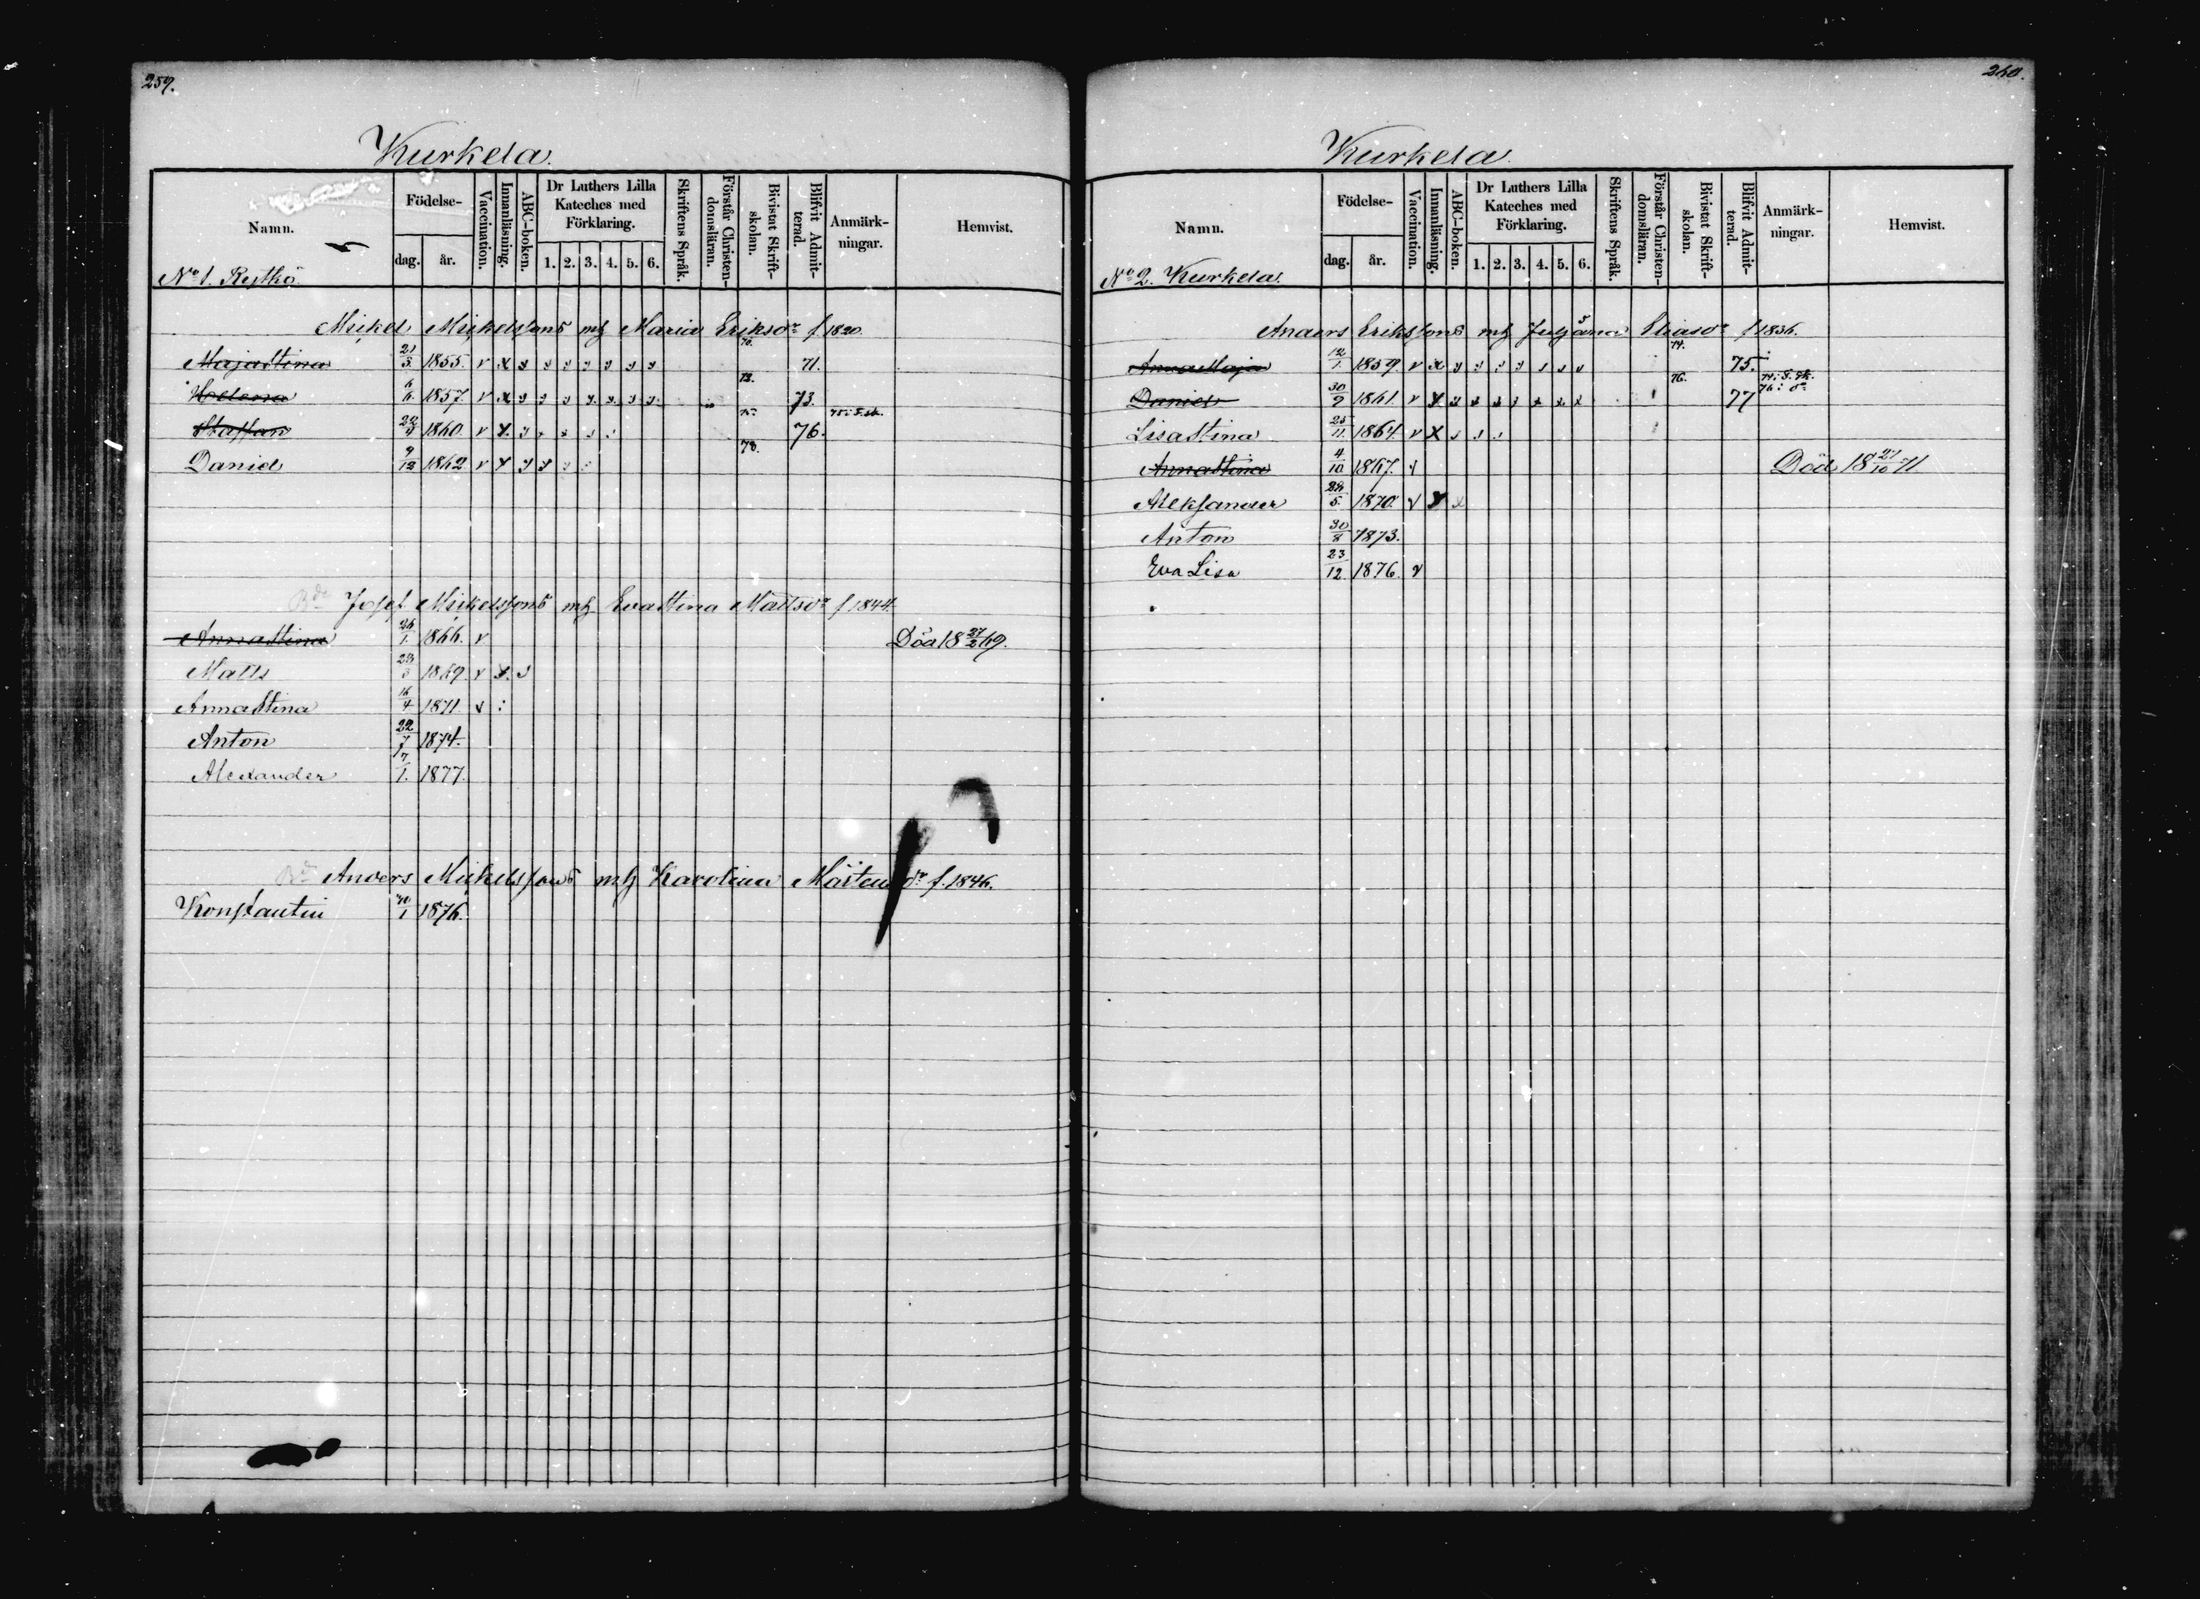 259.
Kurkela.
Namn. Födelse- dag. år. Vaccination. Innanläsning. ABC-boken. Dr Luthers Lilla Kateches med Förklaring. 1. 2. 3. 4. 5. 6. Skriftens Språk. Förstår Christendomsläran. Bivistat Skriftskolan. Blifvit Admitterad. Anmärkningar. Hemvist.
No 1. Rytkö
Mickel Mickelssons mh Maria Eriksdr f 1820.
Majastina 21/3 1855. v x 70. 71.
Helena 6/6. 1857. v x 72. 73.
Staffan 1860. v x 75. 76. 75: S. sk.
Daniel 9/12 1862 v x 78.
Bde Josef Mickelssons mh Evastina Mattsdr f 1844
Annastina 26/1. 1866. v Död 18 27/2 69.
Matts 1869. v x
Annastina 16/4 1871. v
Anton 22/7 1874.
Alexander 7/1. 1877.
Anders Mickelssons mh Karolina Mårtensdr f. 1846.
Konstantin 1876.
260.
Kurkela
Namn. Födelse- dag. år. Vaccination. Innanläsning. ABC-boken. Dr Luthers Lilla Kateches med Förklaring. 1. 2. 3. 4. 5. 6. Skriftens Språk. Förstår Christendomsläran. Bivistat Skriftskolan. Blifvit Admitterad. Anmärkningar. Hemvist.
No 2. Kurkela.
Anders Erikssons mh Juljana Eliasdr f 1836.
Anna Maja 12/1. 1859 v x 74. 75.
Daniel 30/9 1861 v x 76. 77 74: S. sk. 76: do
Lisastina 25/11. 1864. v x
Annastina 4/10 1867. v Död 18 21/10 71
Aleksander 28/5. 1870. v x
Anton 30/8 1873.
Eva Lisa 23/12 1876. v